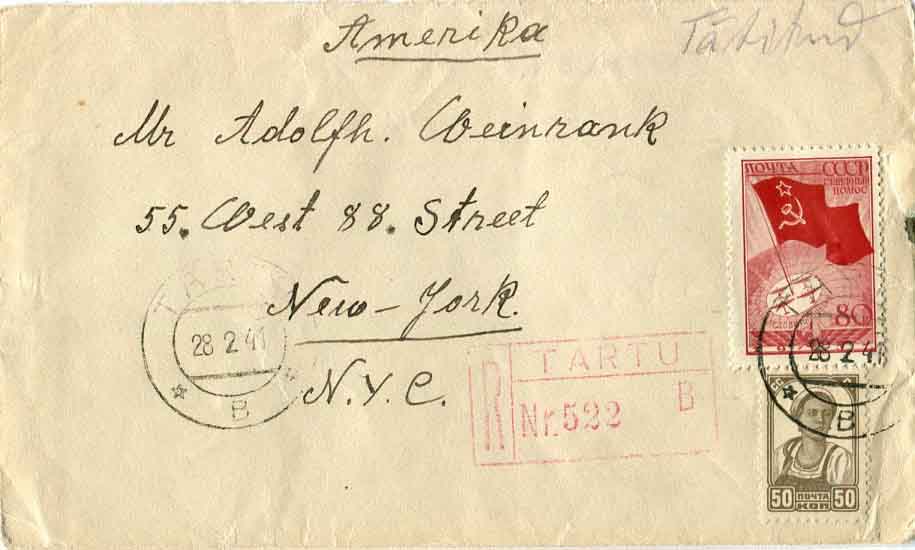 Amerika
Tähitud
Mr Adolfh. Weinrank
55. West 88. Street
New-York.
N.Y.C.
ПОЧТА СССР
СЕВЕРНЫЙ
ПОЛЮС
80
TARTU
28 2 41
B
R
TARTU
Nr. 522 B
28 2 41
B
50 ПОЧТА 50
КОП